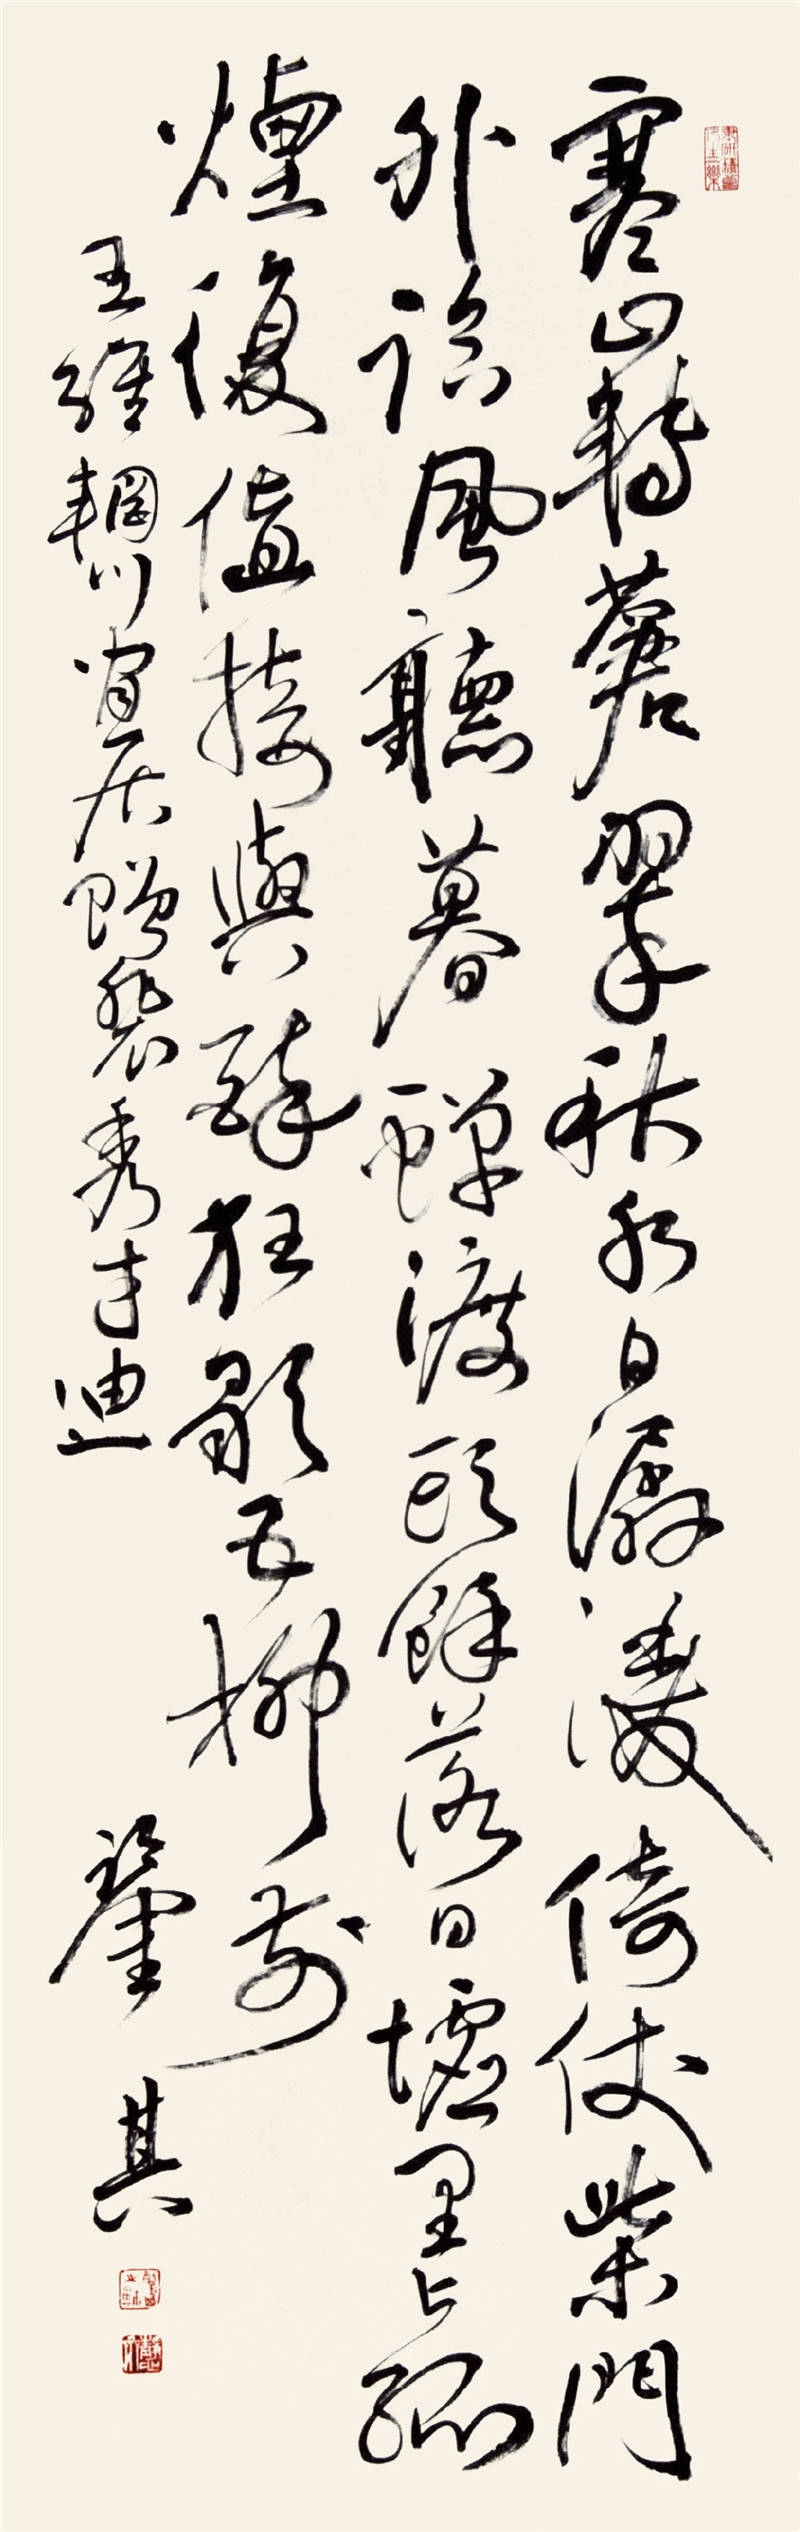 寒山轉蒼翠秋水日潺湲倚仗柴門
外臨風聽暮蟬渡頭餘落日墟里上孤
煙復值接輿醉狂歌五柳前
王維輞川閒居贈裴秀才迪
肇其